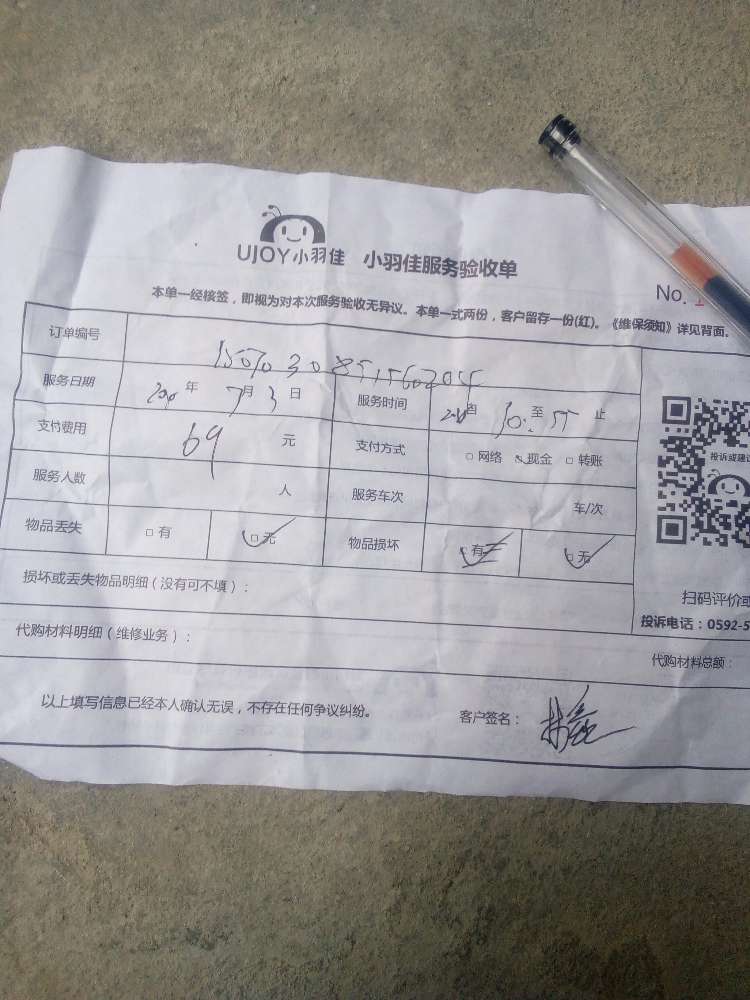 UJOY小羽佳 小羽佳服务验收单
No. 1
本单一经核签，即视为对本次服务验收无异议。本单一式两份，客户留存一份(红)。《维保须知》详见背面。
订单编号
服务日期 年 7月 3日 服务时间 自 10: 至 止
支付费用 69 元 支付方式 □网络 现金 □转账
服务人数 人 服务车次 车/次
物品丢失 □有 □无 物品损坏 有 □无
投诉或建议
扫码评价或
投诉电话：0592-5
损坏或丢失物品明细（没有可不填）：
代购材料明细（维修业务）：
代购材料总额：
以上填写信息已经本人确认无误，不存在任何争议纠纷。 客户签名：